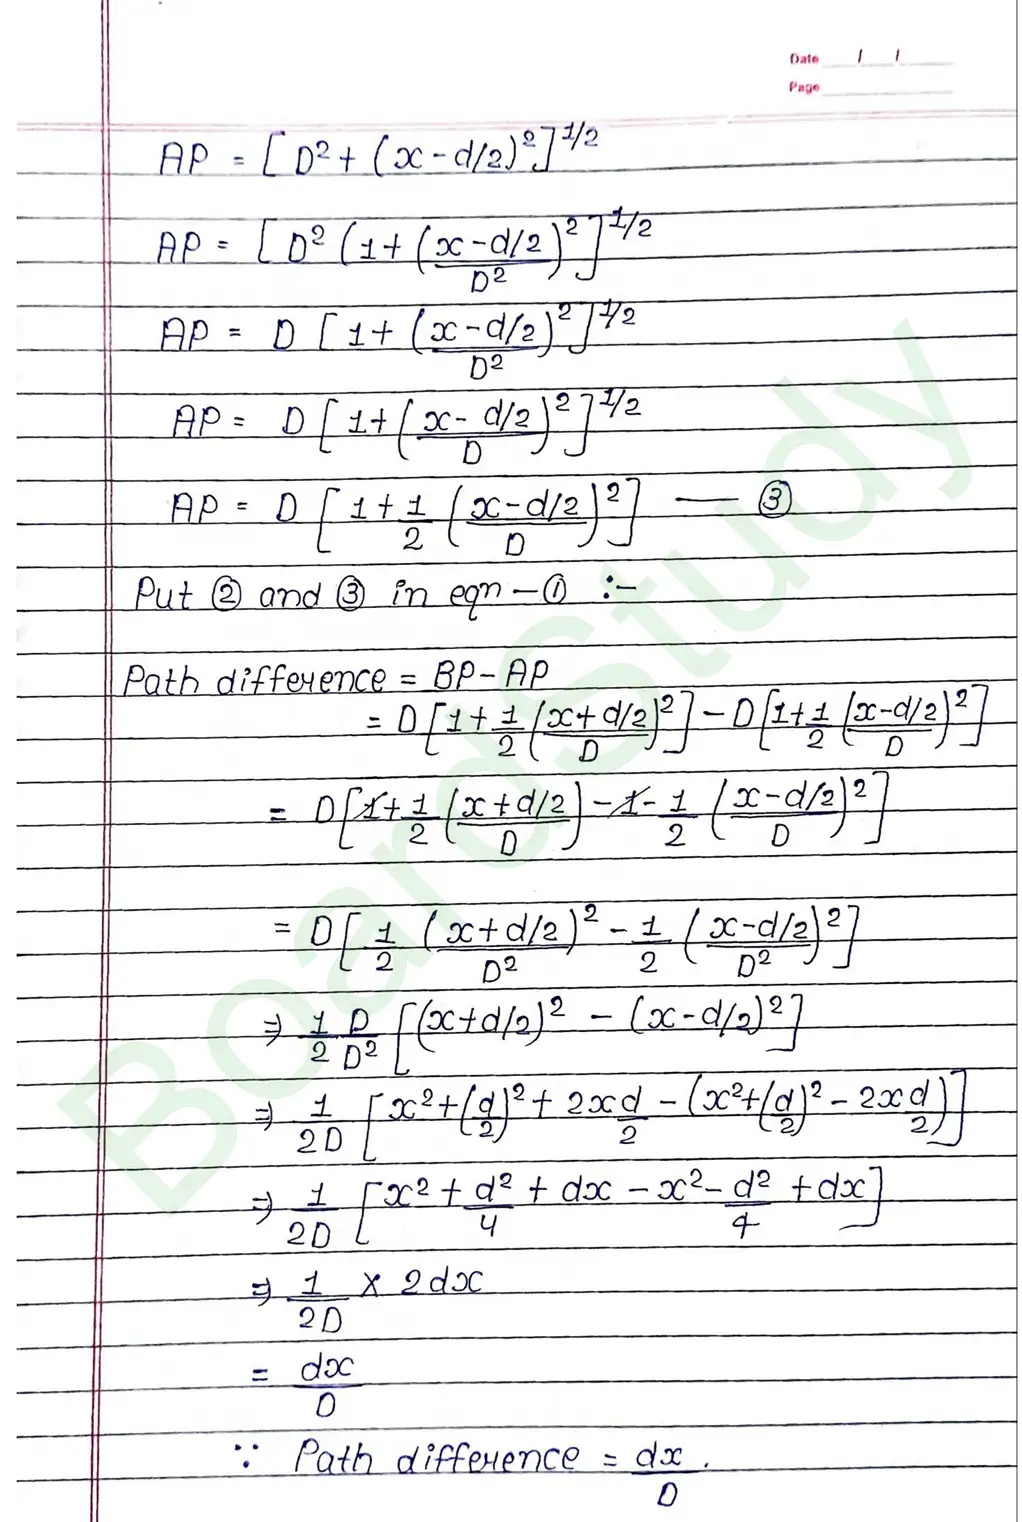 Date / /
Page
AP = [D² + (x - d/2)²]^1/2
AP = [D² (1 + (x - d/2 / D²)²]^1/2
AP = D [1 + (x - d/2 / D²)²]^1/2
AP = D [1 + (x - d/2 / D)²]^1/2
AP = D [1 + 1/2 (x - d/2 / D)²] — ③
Put ② and ③ in eqn - ① :-
Path difference = BP - AP
= D[1 + 1/2 (x + d/2 / D)²] - D[1 + 1/2 (x - d/2 / D)²]
= D[1 + 1/2 (x + d/2 / D) - 1 - 1/2 (x - d/2 / D)²]
= D[1/2 (x + d/2)²/D² - 1/2 (x - d/2 / D²)²]
⇒ 1/2 D/D² [(x + d/2)² - (x - d/2)²]
⇒ 1/2D [x² + (d/2)² + 2xd/2 - (x² + (d/2)² - 2xd/2)]
⇒ 1/2D [x² + d²/4 + dx - x² - d²/4 + dx]
⇒ 1/2D × 2dx
= dx/D
∵ Path difference = dx/D .
BoardStudy